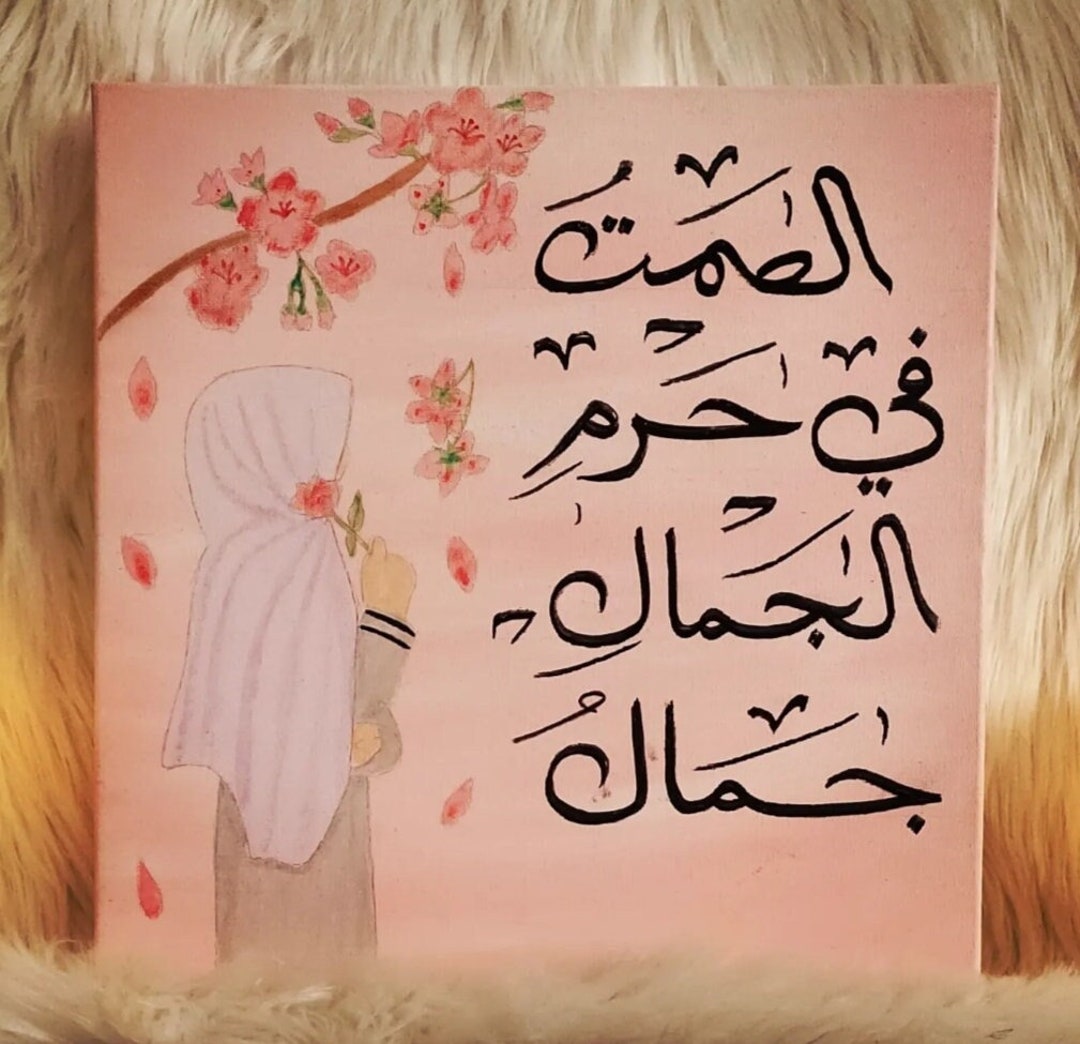 الصمتُ
في حرمِ
الجمالِ
جمالٌ